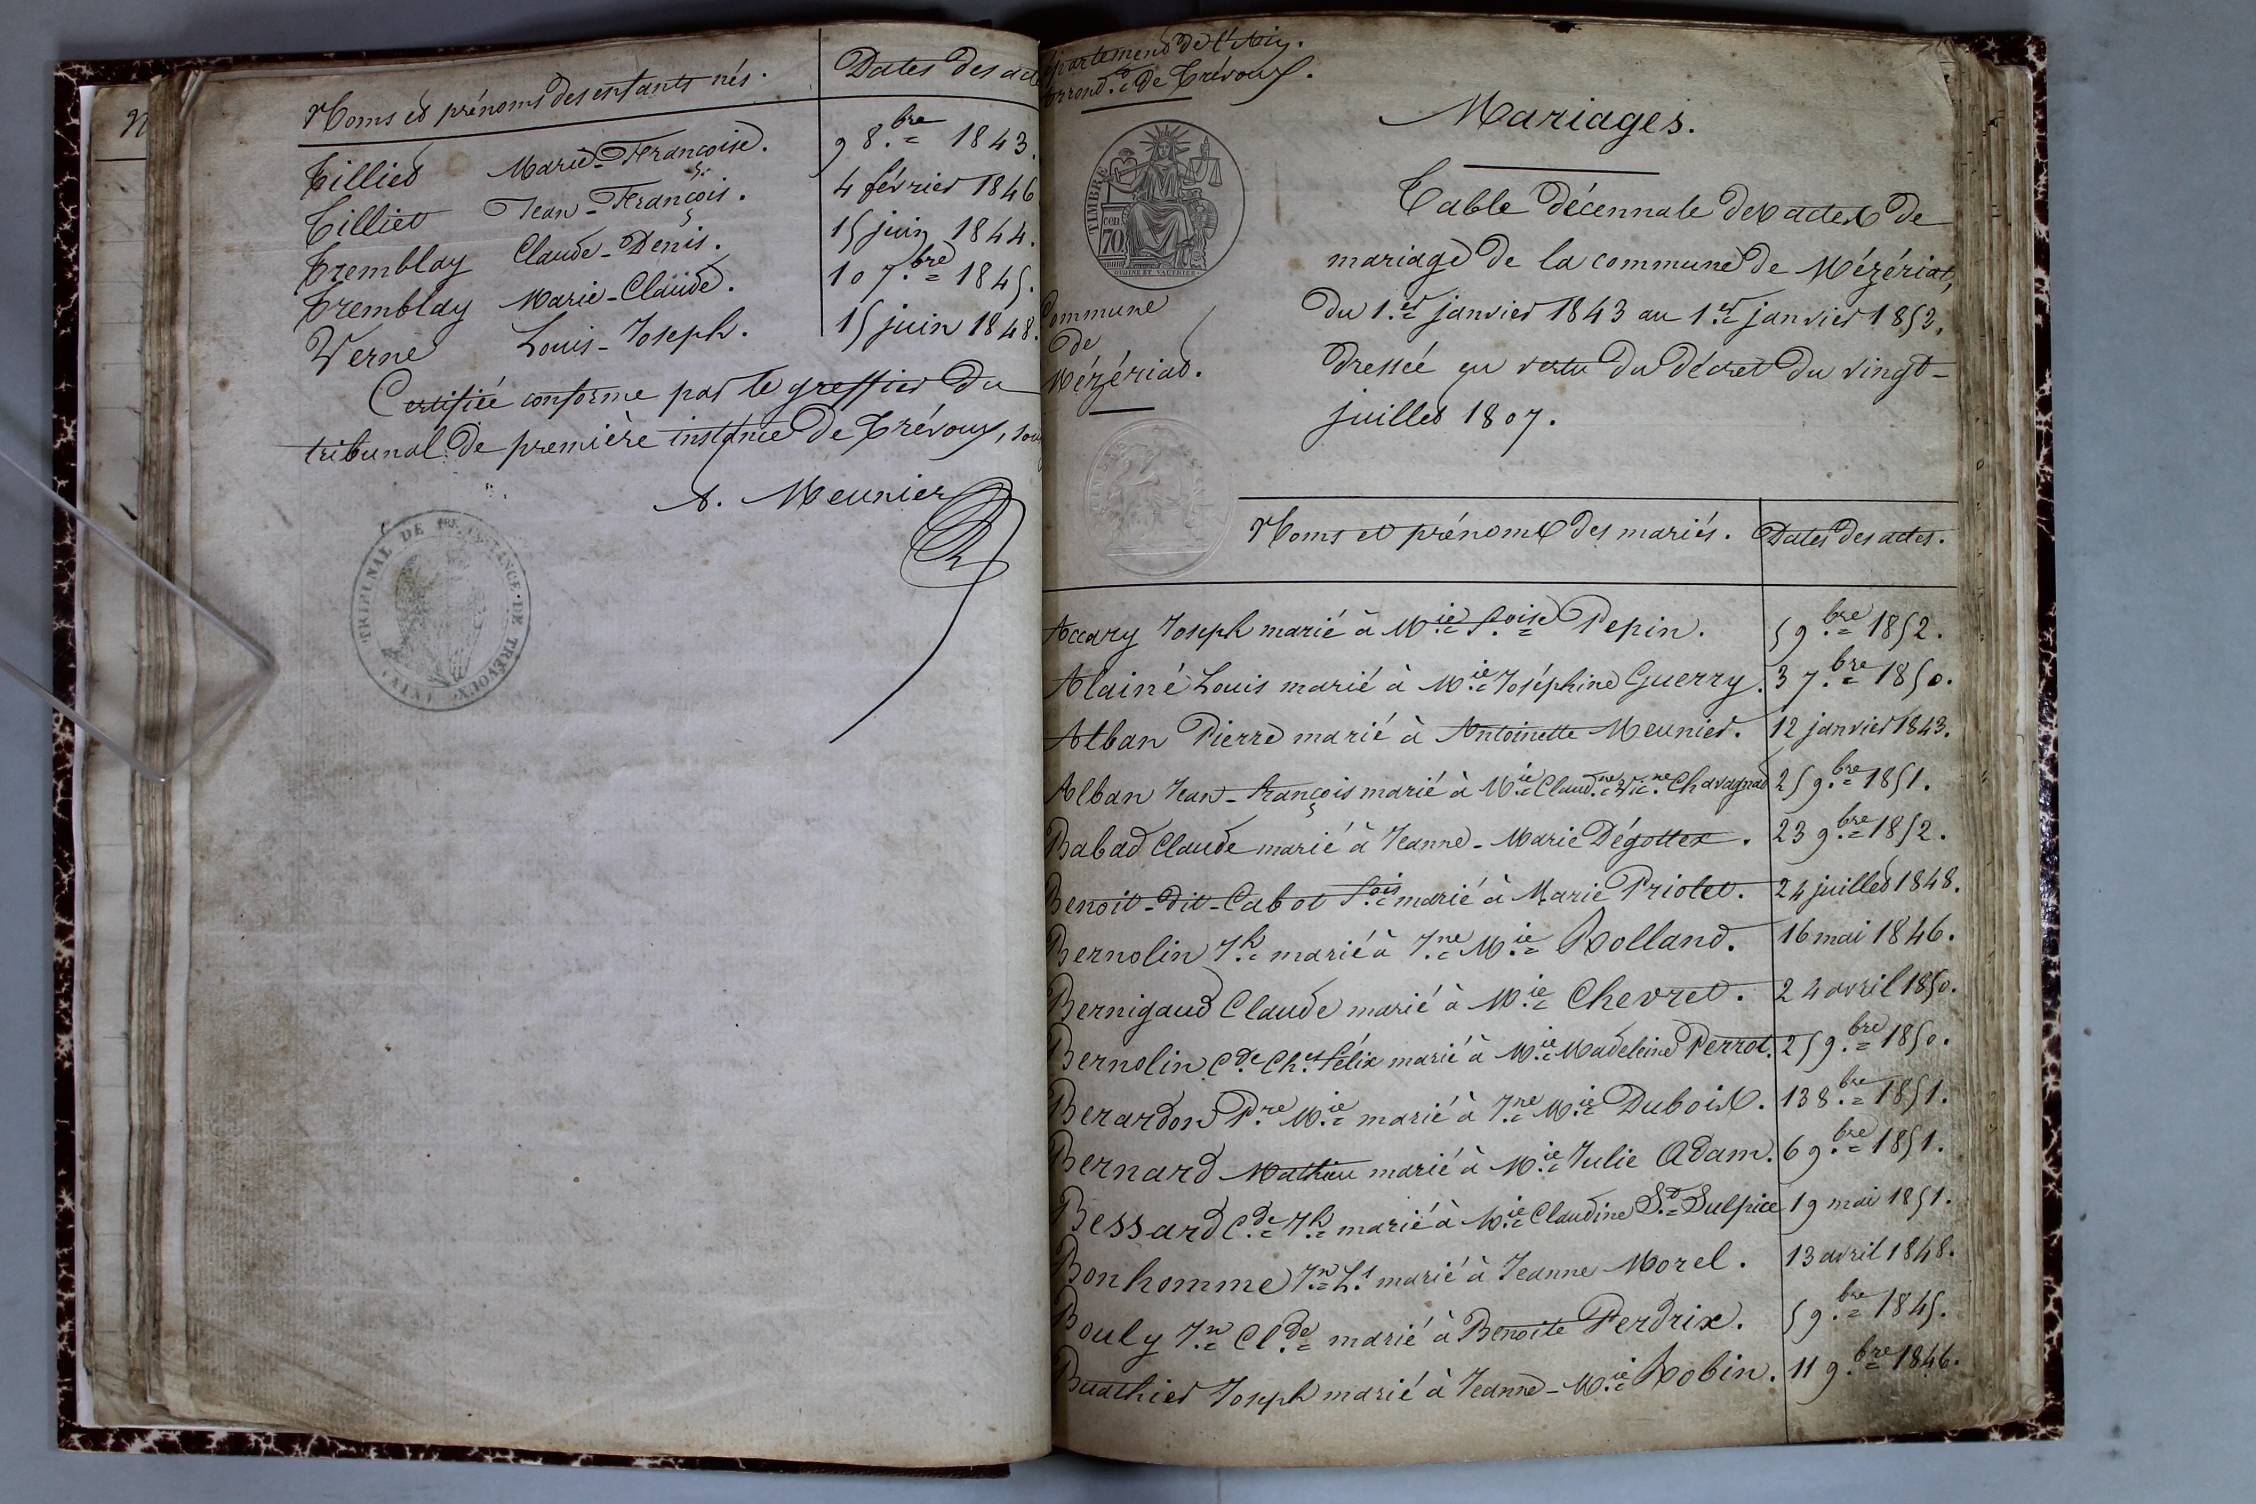 Noms et prénoms des enfants nés.
Dates des act
Tilliet Marie-Françoise. 9 8.bre 1843.
Tilliet Jean-François. 4 février 1846
Tremblay Claude-Denis. 15 juin 1844.
Tremblay Marie-Claude. 10 7.bre 1845.
Verne Louis-Joseph. 15 juin 1848.
Certifiée conforme par le greffier du
tribunal de première instance de Trévoux, sous
A. Meunier
TRIBUNAL DE 1RE INSTANCE DE TRÉVOUX (AIN)
épartement de l'Ain.
arrond.t de Trévoux.
TIMBRE
70
Commune
de
Mézériat.
Mariages.
Table décennale des actes de
mariage de la commune de Mézériat,
du 1.er janvier 1843 au 1.er janvier 1853,
dressée en vertu du décret du vingt-
juillet 1807.
Noms et prénoms des mariés. Dates des actes.
Accary Joseph marié à M.ie F.oise Pepin. 5 9.bre 1852.
Alainé Louis marié à M.ie Joséphine Guerry. 3 7.bre 1850.
Alban Pierre marié à Antoinette Meunier. 12 janvier 1843.
Alban Jean-François marié à M.ie Claud.ne Vic.ne Chavagnat 25 9.bre 1851.
Babad Claude marié à Jeanne-Marie Dégottex. 23 9.bre 1852.
Benoit-dit-Cabot F.ois marié à Marie Priolet. 24 juillet 1848.
Bernolin J.h marié à J.ne M.ie Rolland. 16 mai 1846.
Bernigaud Claude marié à M.ie Chevret. 24 avril 1850.
Bernolin C.de Ch.es Félix marié à M.ie Madeleine Perrot. 25 9.bre 1850.
Berardon P.re M.ie marié à J.ne M.ie Dubois. 13 8.bre 1851.
Bernard Mathieu marié à M.ie Julie Adam. 6 9.bre 1851.
Bessard C.de J.h marié à M.ie Claudine S.t Sulpice 19 mai 1851.
Bonhomme J.n L.s marié à Jeanne Morel. 13 avril 1848.
Bouly J.n Cl.de marié à Benoite Perdrix. 5 9.bre 1845.
Buathier Joseph marié à Jeanne-M.ie Robin. 11 9.bre 1846.